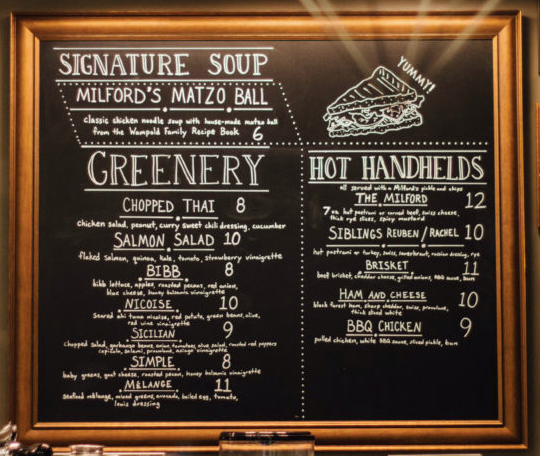 SIGNATURE SOUP
MILFORD'S MATZO BALL
classic chicken noodle soup with house-made matzo ball
from the Wampold Family Recipe Book 6
YUMMY!
GREENERY
CHOPPED THAI 8
chicken salad, peanut, curry sweet chili dressing, cucumber
SALMON SALAD 10
flaked salmon, quinoa, kale, tomato, strawberry vinaigrette
BIBB 8
bibb lettuce, apples, roasted pecans, red onion,
blue cheese, honey balsamic vinaigrette
NICOISE 10
Seared ahi tuna nicoise, red potato, green beans, olive,
red wine vinaigrette
SICILIAN 9
Chopped salad, garbanzo beans, onion, tomatoes, olive salad, roasted red peppers
salami, provolone, asiago vinaigrette
SIMPLE 8
baby greens, goat cheese, roasted pecan, honey balsamic vinaigrette
MÉLANGE 11
seafood mélange, mixed greens, avocado, boiled egg, tomato,
louis dressing
HOT HANDHELDS
all served with a Milford's pickle and chips
THE MILFORD 12
7 oz hot pastrami or corned beef, swiss cheese,
thick rye slices, spicy mustard
SIBLINGS REUBEN / RACHEL 10
hot pastrami or turkey, swiss, sauerkraut, russian dressing, rye
BRISKET 11
beef brisket, cheddar cheese, grilled onions, BBQ sauce, bun
HAM AND CHEESE 10
black forest ham, sharp cheddar, swiss, provolone,
thick sliced white
BBQ CHICKEN 9
pulled chicken, white BBQ sauce, sliced pickle, bun